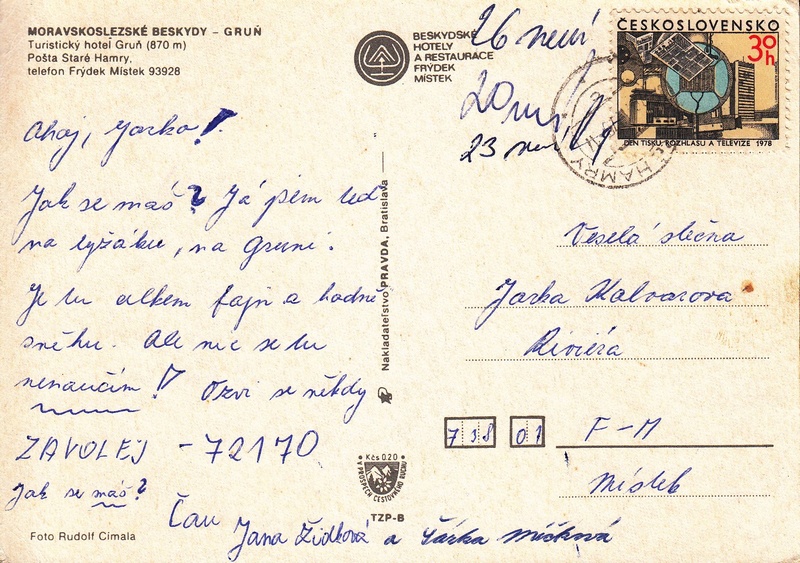 MORAVSKOSLEZSKÉ BESKYDY – GRUŇ
Turistický hotel Gruň (870 m)
Pošta Staré Hamry,
telefon Frýdek Místek 93928
BESKYDSKÉ
HOTELY
A RESTAURACE
FRÝDEK
MÍSTEK
26 není
20
23 není
ČESKOSLOVENSKO
30h
DEN TISKU, ROZHLASU A TELEVIZE 1978
HAMRY
Ahoj, Jarko!
Jak se máš? Já jsem teď
na lyžáku, na Gruni.
Je tu celkem fajn a hodně
sněhu. Ale nic se tu
nenaučím! Ozvi se někdy
ZAVOLEJ - 72170
Jak se máš?
Čau Jana Židková a Šárka Mičková
Foto Rudolf Címala
Nakladateľstvo PRAVDA, Bratislava
Kčs 0,20
V PROSPECH CESTOVNÉHO RUCHU
TZP-B
Veselá slečna
Jarka Kalvarova
Riviéra
738 01 F-M
Místek